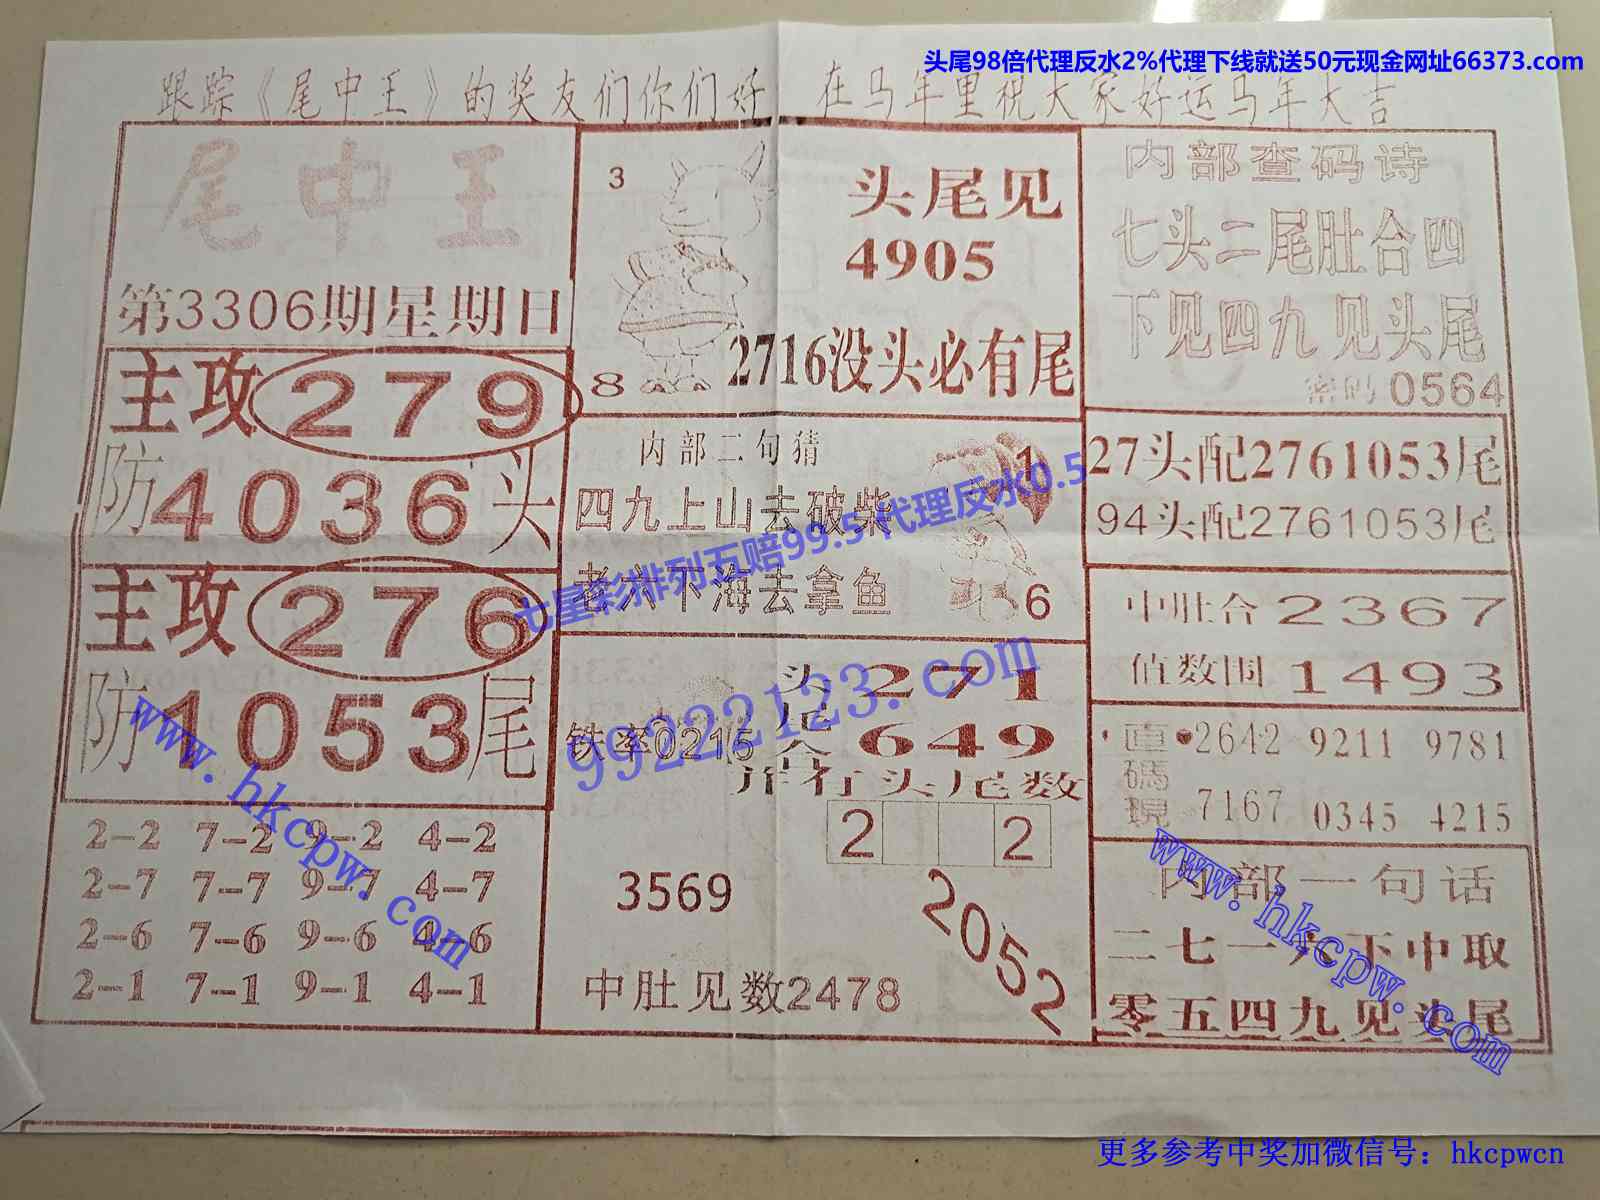 头尾98倍代理反水2%代理下线就送50元现金网址66373.com
跟踪《尾中王》的奖友们你们好 在马年里祝大家好运马年大吉
尾中王
第3306期星期日
主攻279
防4036头
主攻276
防1053尾
2-2 7-2 9-2 4-2
2-7 7-7 9-7 4-7
2-6 7-6 9-6 4-6
2-1 7-1 9-1 4-1
3
8
头尾见
4905
2716没头必有尾
内部二句猜
四九上山去破柴
老六下海去拿鱼
1
6
七星彩排列五赔99.5代理反水0.5
99222123.com
头尾合
271
649
铁率0215
并有头尾数
2 2
3569
2052
中肚见数2478
内部查码诗
七头二尾肚合四
下见四九见头尾
密码0564
27头配2761053尾
94头配2761053尾
中肚合2367
值数围1493
直碼現
2642 9211 9781
7167 0345 4215
内部一句话
二七一六下中取
零五四九见头尾
www.hkcpw.com
www.hkcpw.com
更多参考中奖加微信号：hkcpwcn